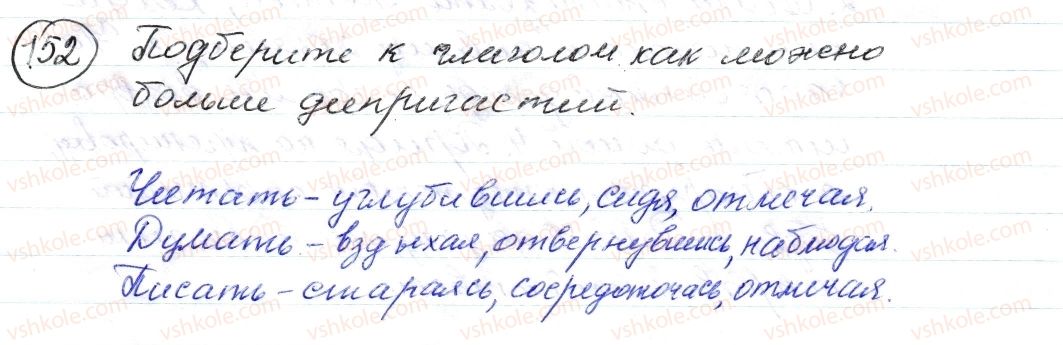 152 Подберите к глаголом как можно
больше деепричастий.
Читать – углубившись, сидя, отмечая.
Думать – вздыхая, отвернувшись, наблюдая.
Писать – стараясь, сосредоточась, отмечая.
vshkole.com